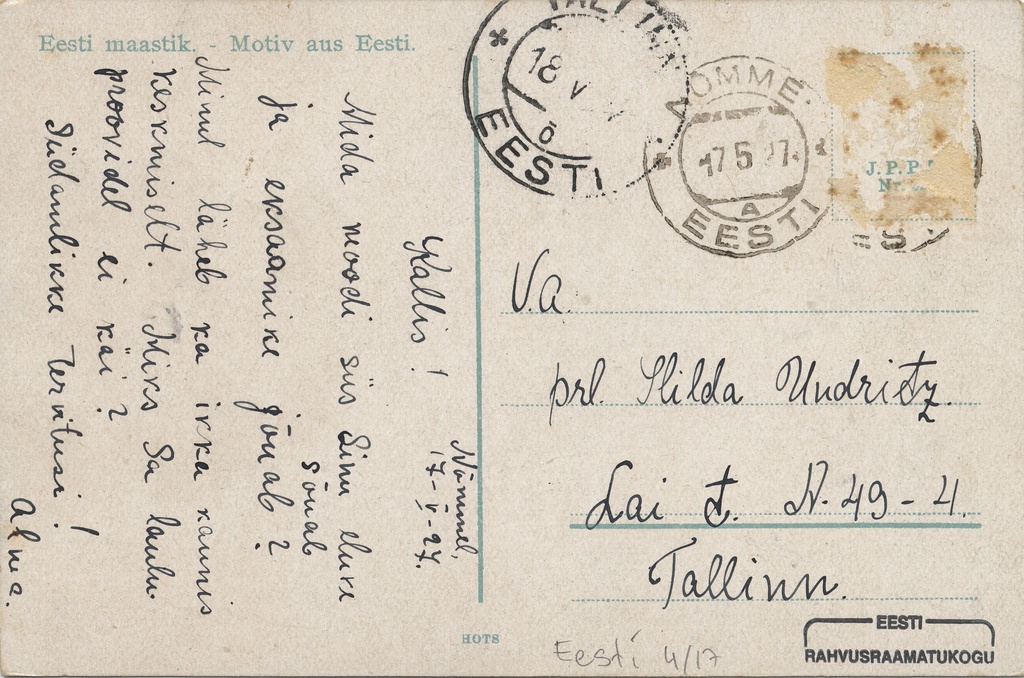 Eesti maastik. - Motiv aus Eesti.
Nõmmel,
17-V-27.
Kallis!
Mida moodi siis Sinu elukene
sõuab
ja eksaamine jõuab?
Minul läheb ka ikka kaunis
keskmiselt. Miks Sa laulu
proovidel ei käi?
Südamlikke tervitusi!
Alma.
TALLINN
18 V
EESTI
NÕMME
17.5.27.
A
EESTI
J. P. P.
Nr.
V.a.
prl. Hilda Undritz.
Lai t. N. 49-4.
Tallinn.
HOTS
Eesti 4/17
EESTI
RAHVUSRAAMATUKOGU